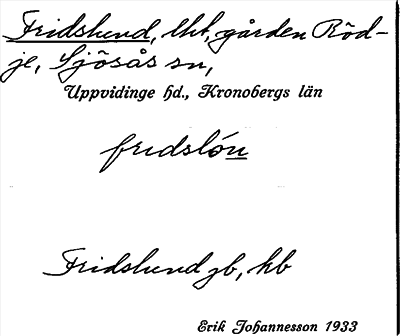 Fridslund, lht, gården Röd-
je, Sjösås sn,
Uppvidinge hd., Kronobergs län
fridslón
Fridslund jb, kb
Erik Johannesson 1933